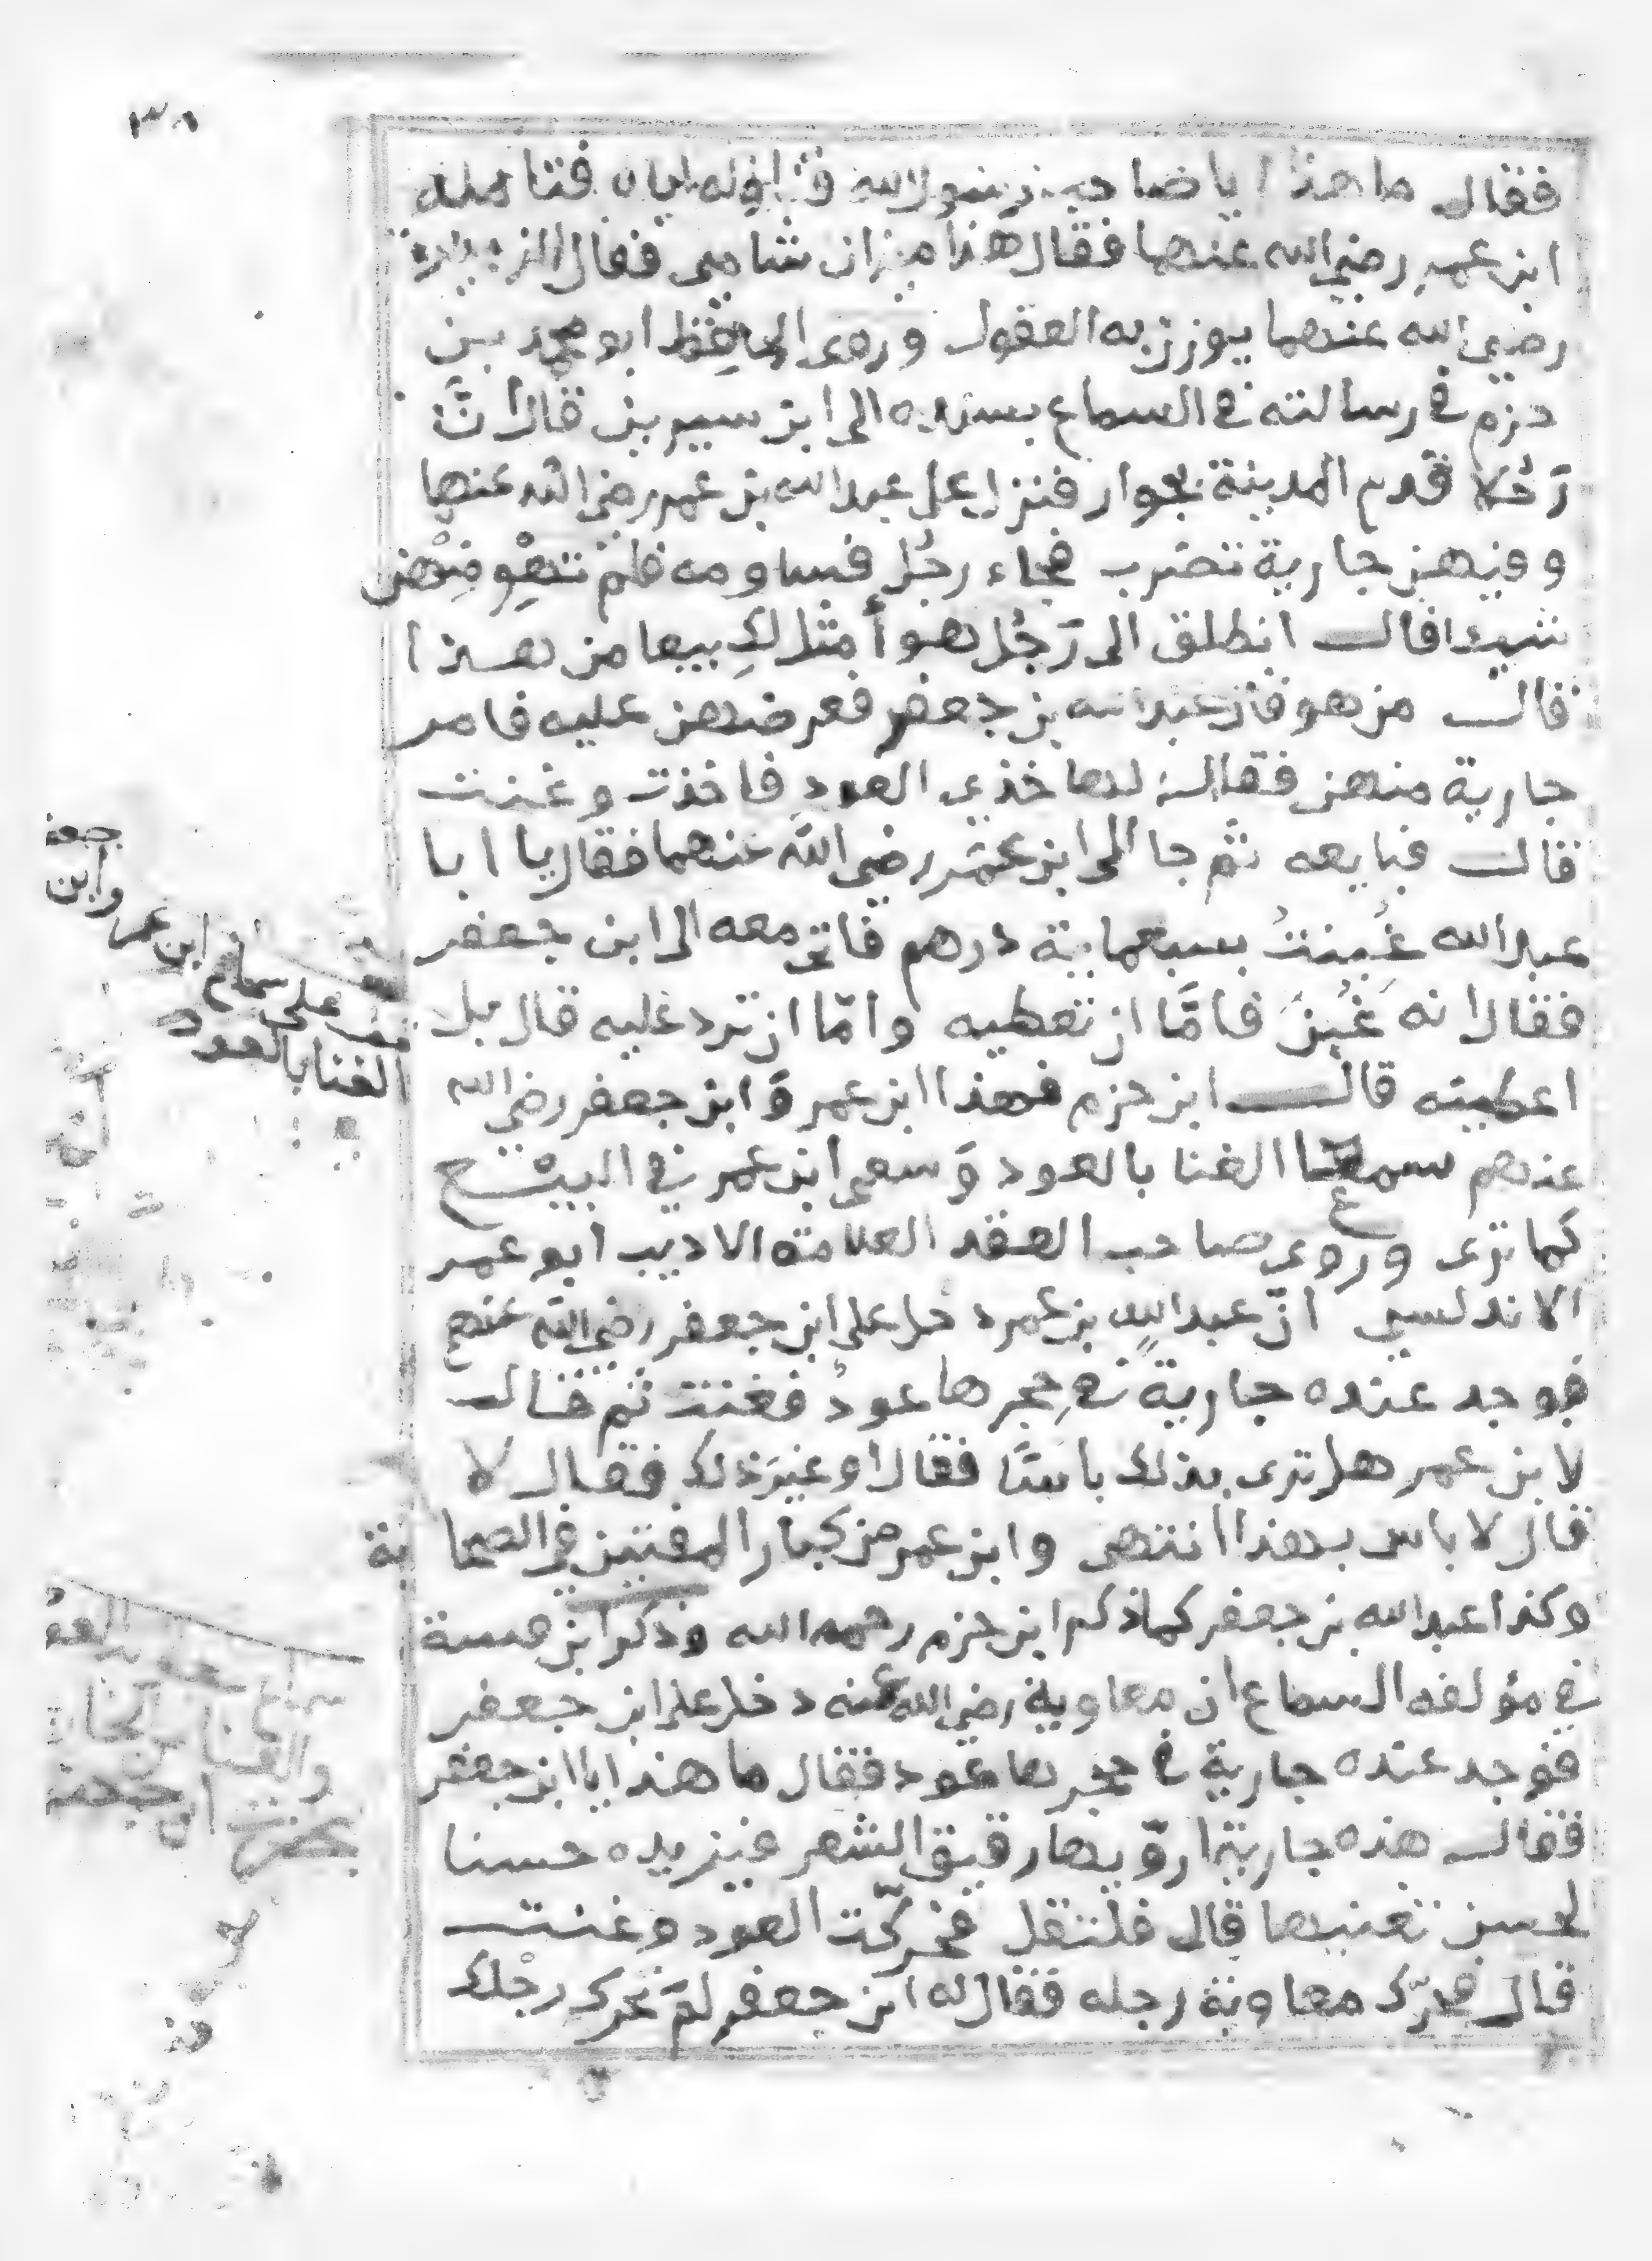 ٣٨
فقال ما هذا يا صاحب رسول الله فناوله اياه فتامله
ابن عمر رضي الله عنهما فقال هذا ميزان شامي فقال ابن الزبير
رضي الله عنهما يوزن به العقول وروى الحافظ ابو محمد بن
حزم في رسالته في السماع بسنده الى ابن سيرين قال انَّ
رَجُلا قدم المدينة بجوار فنزل على عبد الله بن عمر رضي الله عنهما
وفيهن جارية تضرب فجاء رجُل فساومه فلم تَهْوِ منهن
شيئا قال انطلق الى رَجُل هو أمثل لك بيعا من هذا
قال من هو قال عبد الله بن جعفر فعرضهن عليه فامر
جارية منهن فقال لها خذى العود فاخذت وغنت
قال فبايعه ثم جا الى ابن عمر رضي الله عنهما فقال يا ابا
عبد الله غُبِنتُ بسبعماية درهم فاتى معه الى ابن جعفر
فقال انه غُبِنَ فامَّا ان تعطيه وامّا ان ترد عليه قال بل
اعطيته قال ابن حزم فهذا ابن عمر وَابن جعفر رضي الله
عنهم سمعا الغنا بالعود وَسعى ابن عمر في البيْع
كما ترى وروى صاحب العقد العلامة الاديب ابو عمر
الاندلسي انّ عبد الله بن عمر دخل على ابن جعفر رضي الله عنهم
فوجد عنده جارية في حِجرها عودٌ فغنت ثم قال
لابن عمر هل ترى بذلك باسًا فقال او غير ذلك فقال لا
قال لا باس بهذا انتهى وابن عمر من كبار المفتين في الصحابة
وكذا عبد الله بن جعفر كما ذكر ابن حزم رحمه الله وذكر ابن قتيبة
في مؤلفه السماع ان معاوية رضي الله عنه دخل على ابن جعفر
فوجد عنده جارية في حجرها عود فقال ما هذا يا ابن جعفر
فقال هذه جارية اروّيها رقيق الشعر فيزيده حسنا
لحسن تغنيها قال فلتقل فحرّكت العود وغنت
قال فحرّك معاوية رجله فقال له ابن جعفر لم تحرك رجلك
قف على سماع ابن عمر وابن جعفر
الغنا بالعود